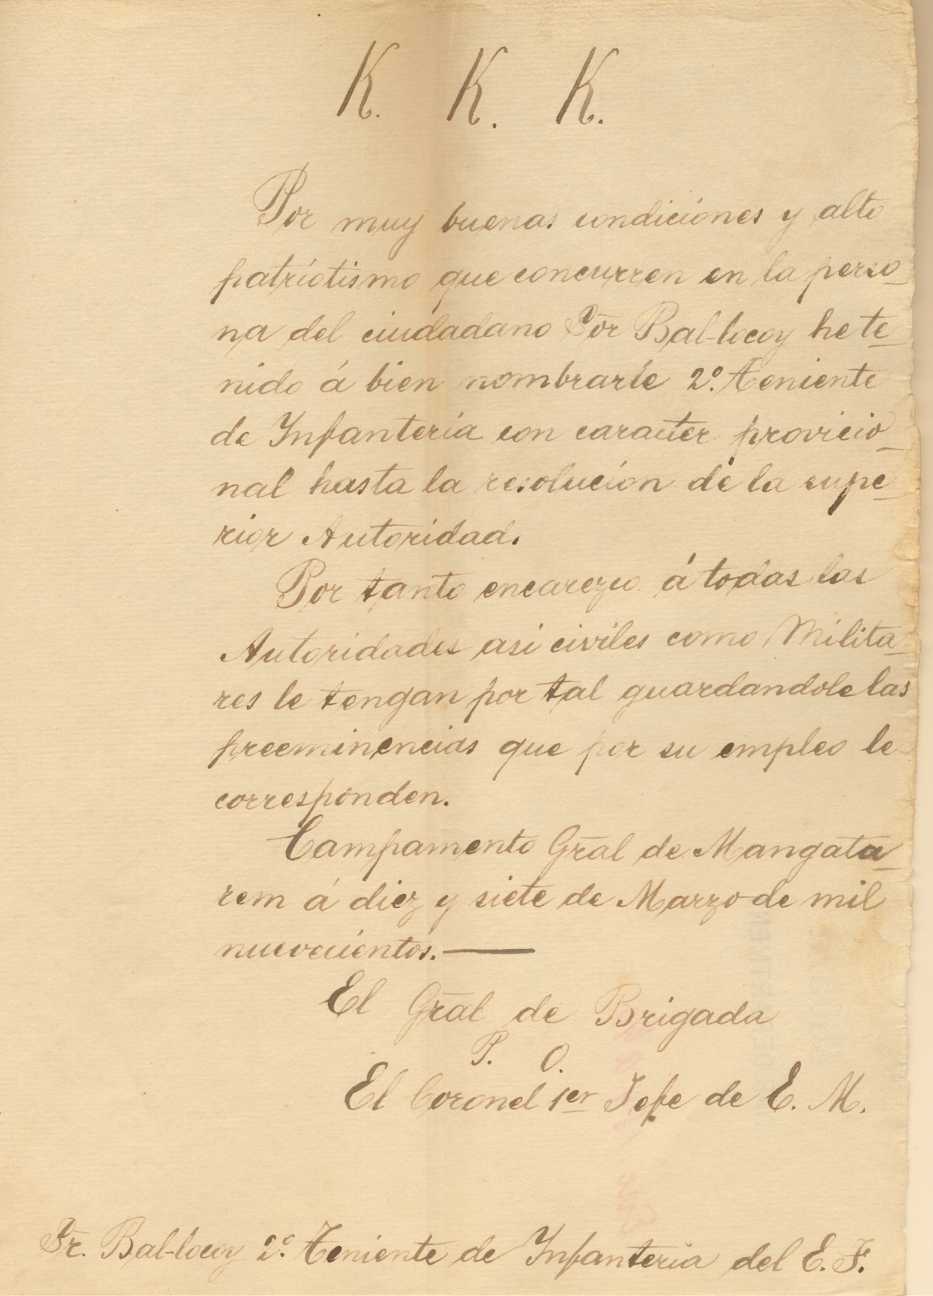 K. K. K.
Por muy buenas condiciones y alto
patriotismo que concurren en la perso-
na del ciudadano Sor Bal-locoy he te-
nido á bien nombrarle 2º. Teniente
de Infantería con caracter provicio-
nal hasta la resolución de la supe-
rior Autoridad.
Por tanto encarezco á todas las
Autoridades asi civiles como Milita-
res le tengan por tal guardandole las
preeminencias que por su empleo le
corresponden.
Campamento Gral de Mangata-
rem á diez y siete de Marzo de mil
nuevecientos.—
El Gral de Brigada
P. O.
El Coronel 1er Jefe de E. M.
Sr. Bal-locoy 2º. Teniente de Infantería del E. F.